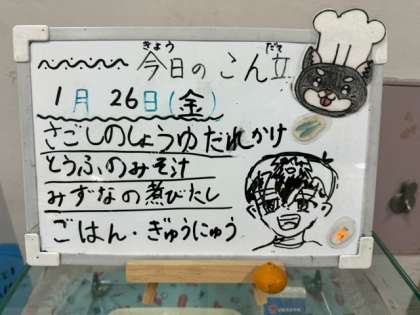 きょう だて
今日のこん立
1月 26日(金)
さごしのしょうゆだれかけ
とうふのみそ汁
みずなの煮びたし
ごはん・ぎゅうにゅう